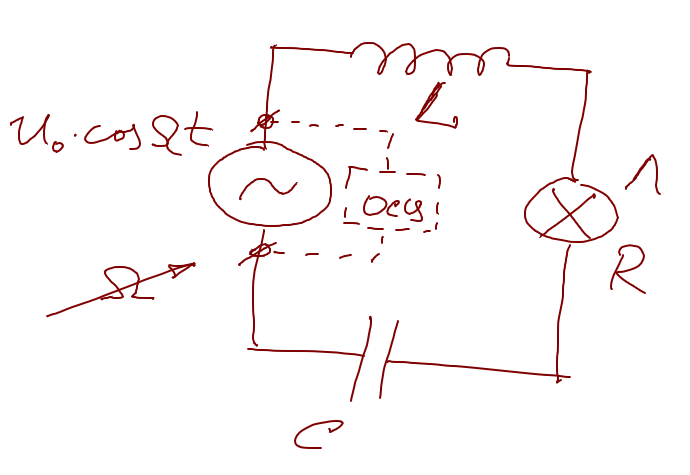 U₀·cosΩt
L
осц
Л
R
Ω
C